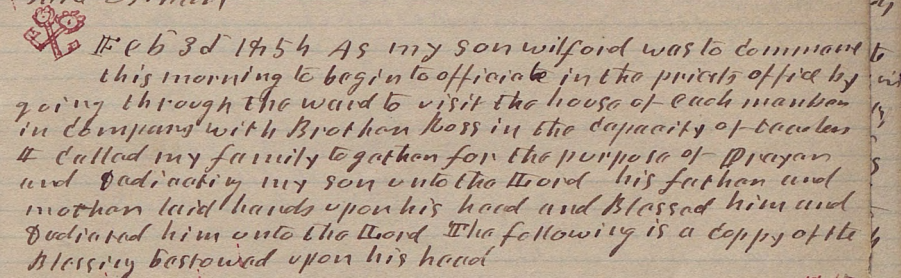 Feb 3d 1854 As my son wilford was to commence
this morning to begin to officiate in the priests office by
going through the ward to visit the house of each member
in company with Brother Ross in the capacity of teachers
I called my family together for the purpose of Prayer
and Dedicating my son unto the Lord his father and
mother laid hands upon his head and Blessed him and
Dedicated him unto the Lord The following is a coppy of the
Blessing bestowed upon his head